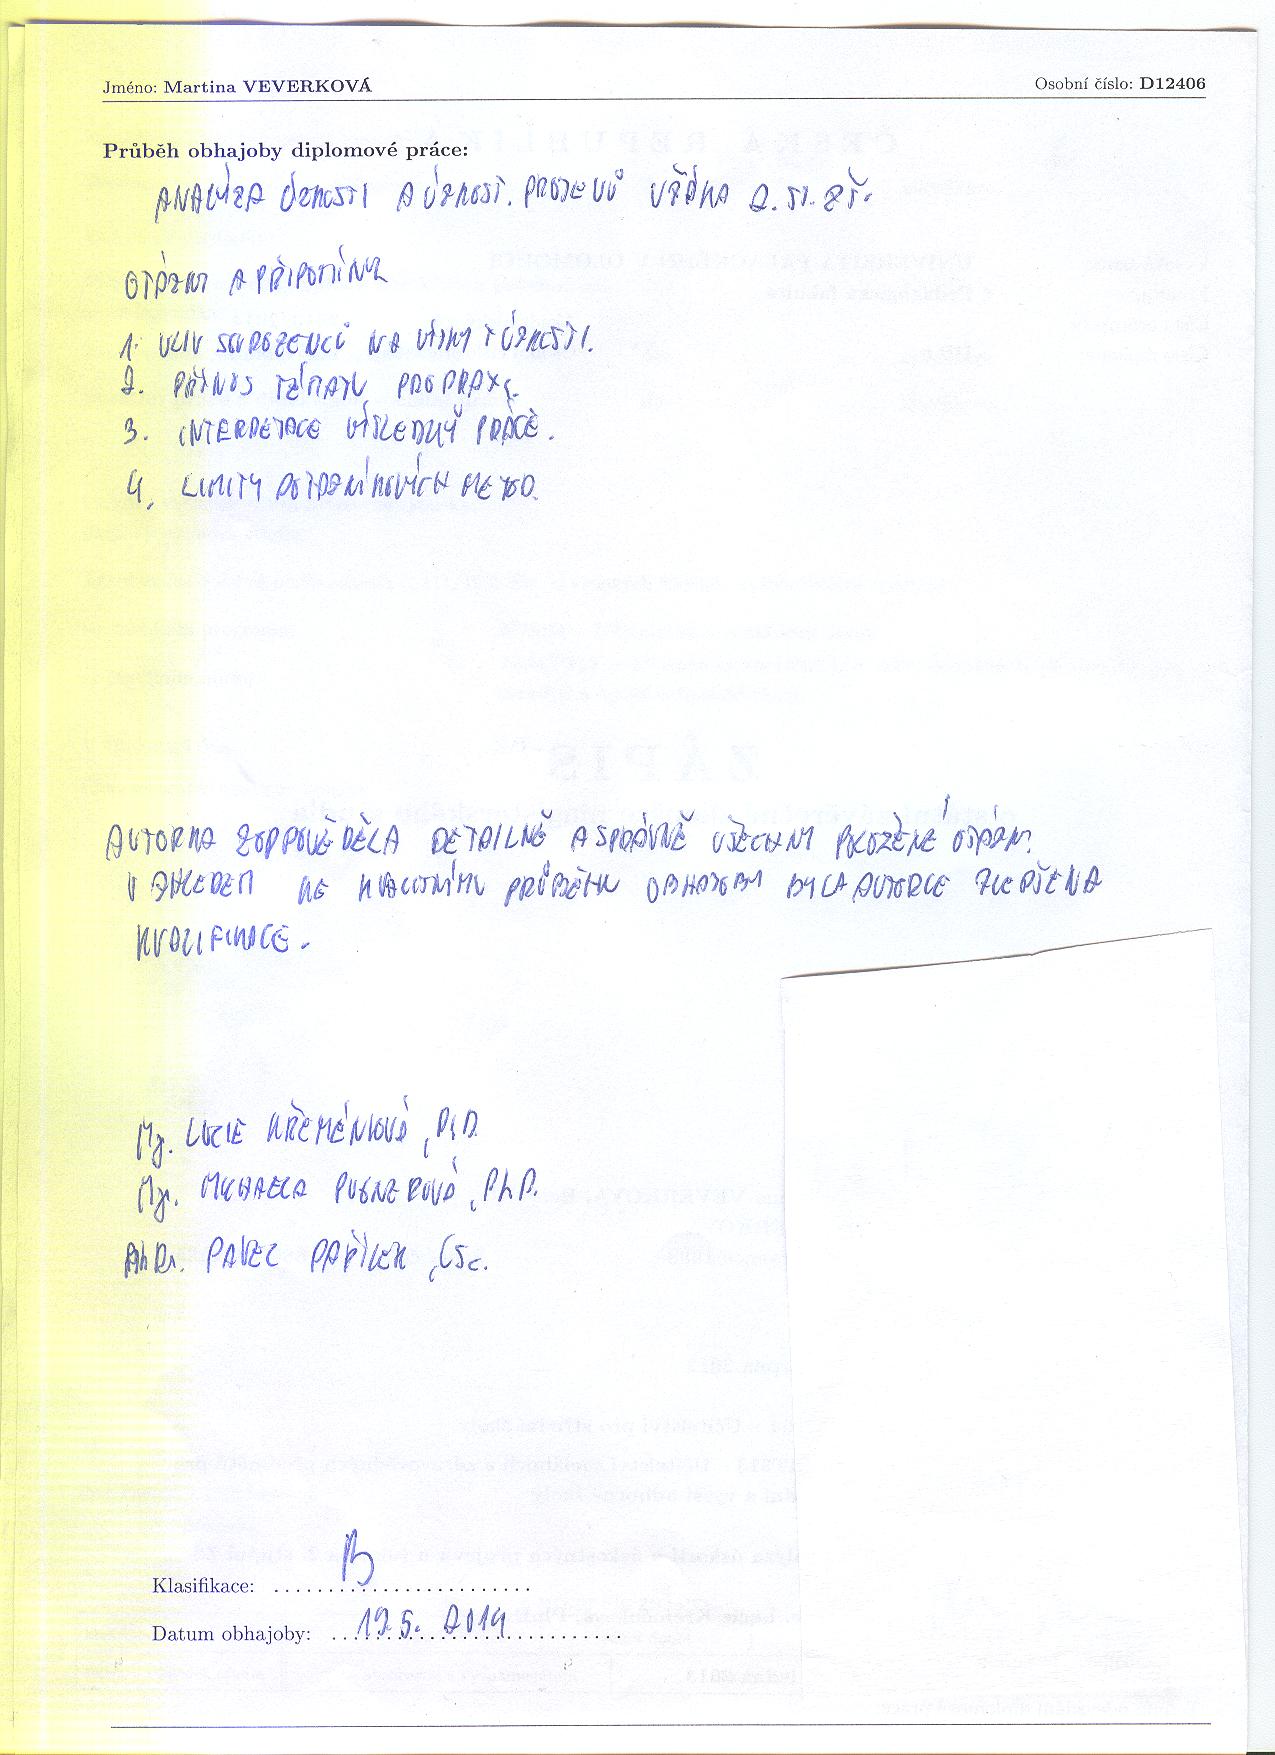 Jméno: Martina VEVERKOVÁ
Osobní číslo: D12406
Průběh obhajoby diplomové práce:
ANALÝZA ÚZKOSTI A ÚZKOST. PROJEVŮ U ŽÁKA 2. ST. ZŠ.
OTÁZKY A PŘIPOMÍNKY
1. VLIV SOUROZENCŮ NA ÚZKOSTI.
2. PŘÍNOS TÉMATU PRO PRAXI.
3. INTERPRETACE VÝSLEDKŮ PRÁCE.
4. LIMITY DOTAZNÍKOVÝCH METOD.
AUTORKA ZODPOVĚDĚLA DETAILNĚ A SPRÁVNĚ VŠECHNY POLOŽENÉ OTÁZKY.
VZHLEDEM KE KVALITNÍMU PRŮBĚHU OBHAJOBY BYLA AUTORCE ZLEPŠENA
KVALIFIKACE.
Mgr. LUCIE KŘEMÉNKOVÁ, Ph.D.
Mgr. MICHAELA PUGNEROVÁ, Ph.D.
PhDr. PAVEL PAPÍLEK, CSc.
Klasifikace: B
Datum obhajoby: 19.5. 2014